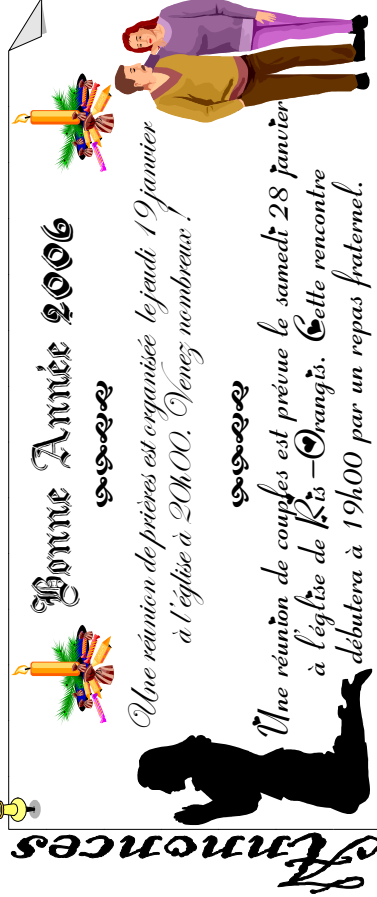 Annonces
Bonne Année 2006
Une réunion de prières est organisée le jeudi 19 janvier
à l'église à 20h00. Venez nombreux !
Une réunion de couples est prévue le samedi 28 janvier
à l'église de Ris-Orangis. Cette rencontre
débutera à 19h00 par un repas fraternel.